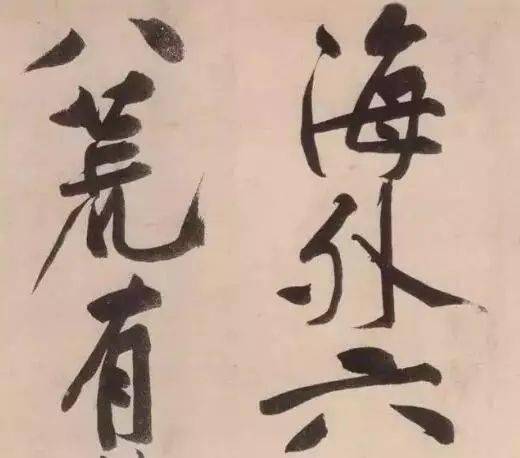 海外六
八荒有